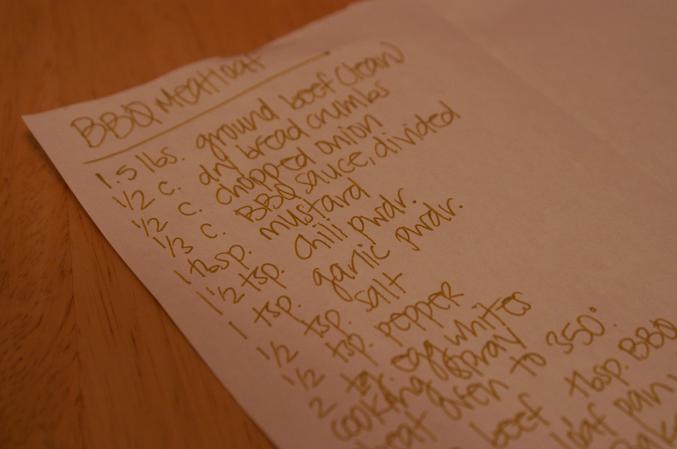 BBQ Meatloaf
1.5 lbs. ground beef (lean)
1/2 c. dry bread crumbs
1/2 c. chopped onion
1/3 c. BBQ sauce, divided
1 tbsp. mustard
1 1/2 tsp. chili pwdr.
1 tsp. garlic pwdr.
1/2 tsp. salt
1/2 tsp. pepper
2 egg whites
cooking spray
heat oven to 350°
beef tbsp. BBQ
loaf pan